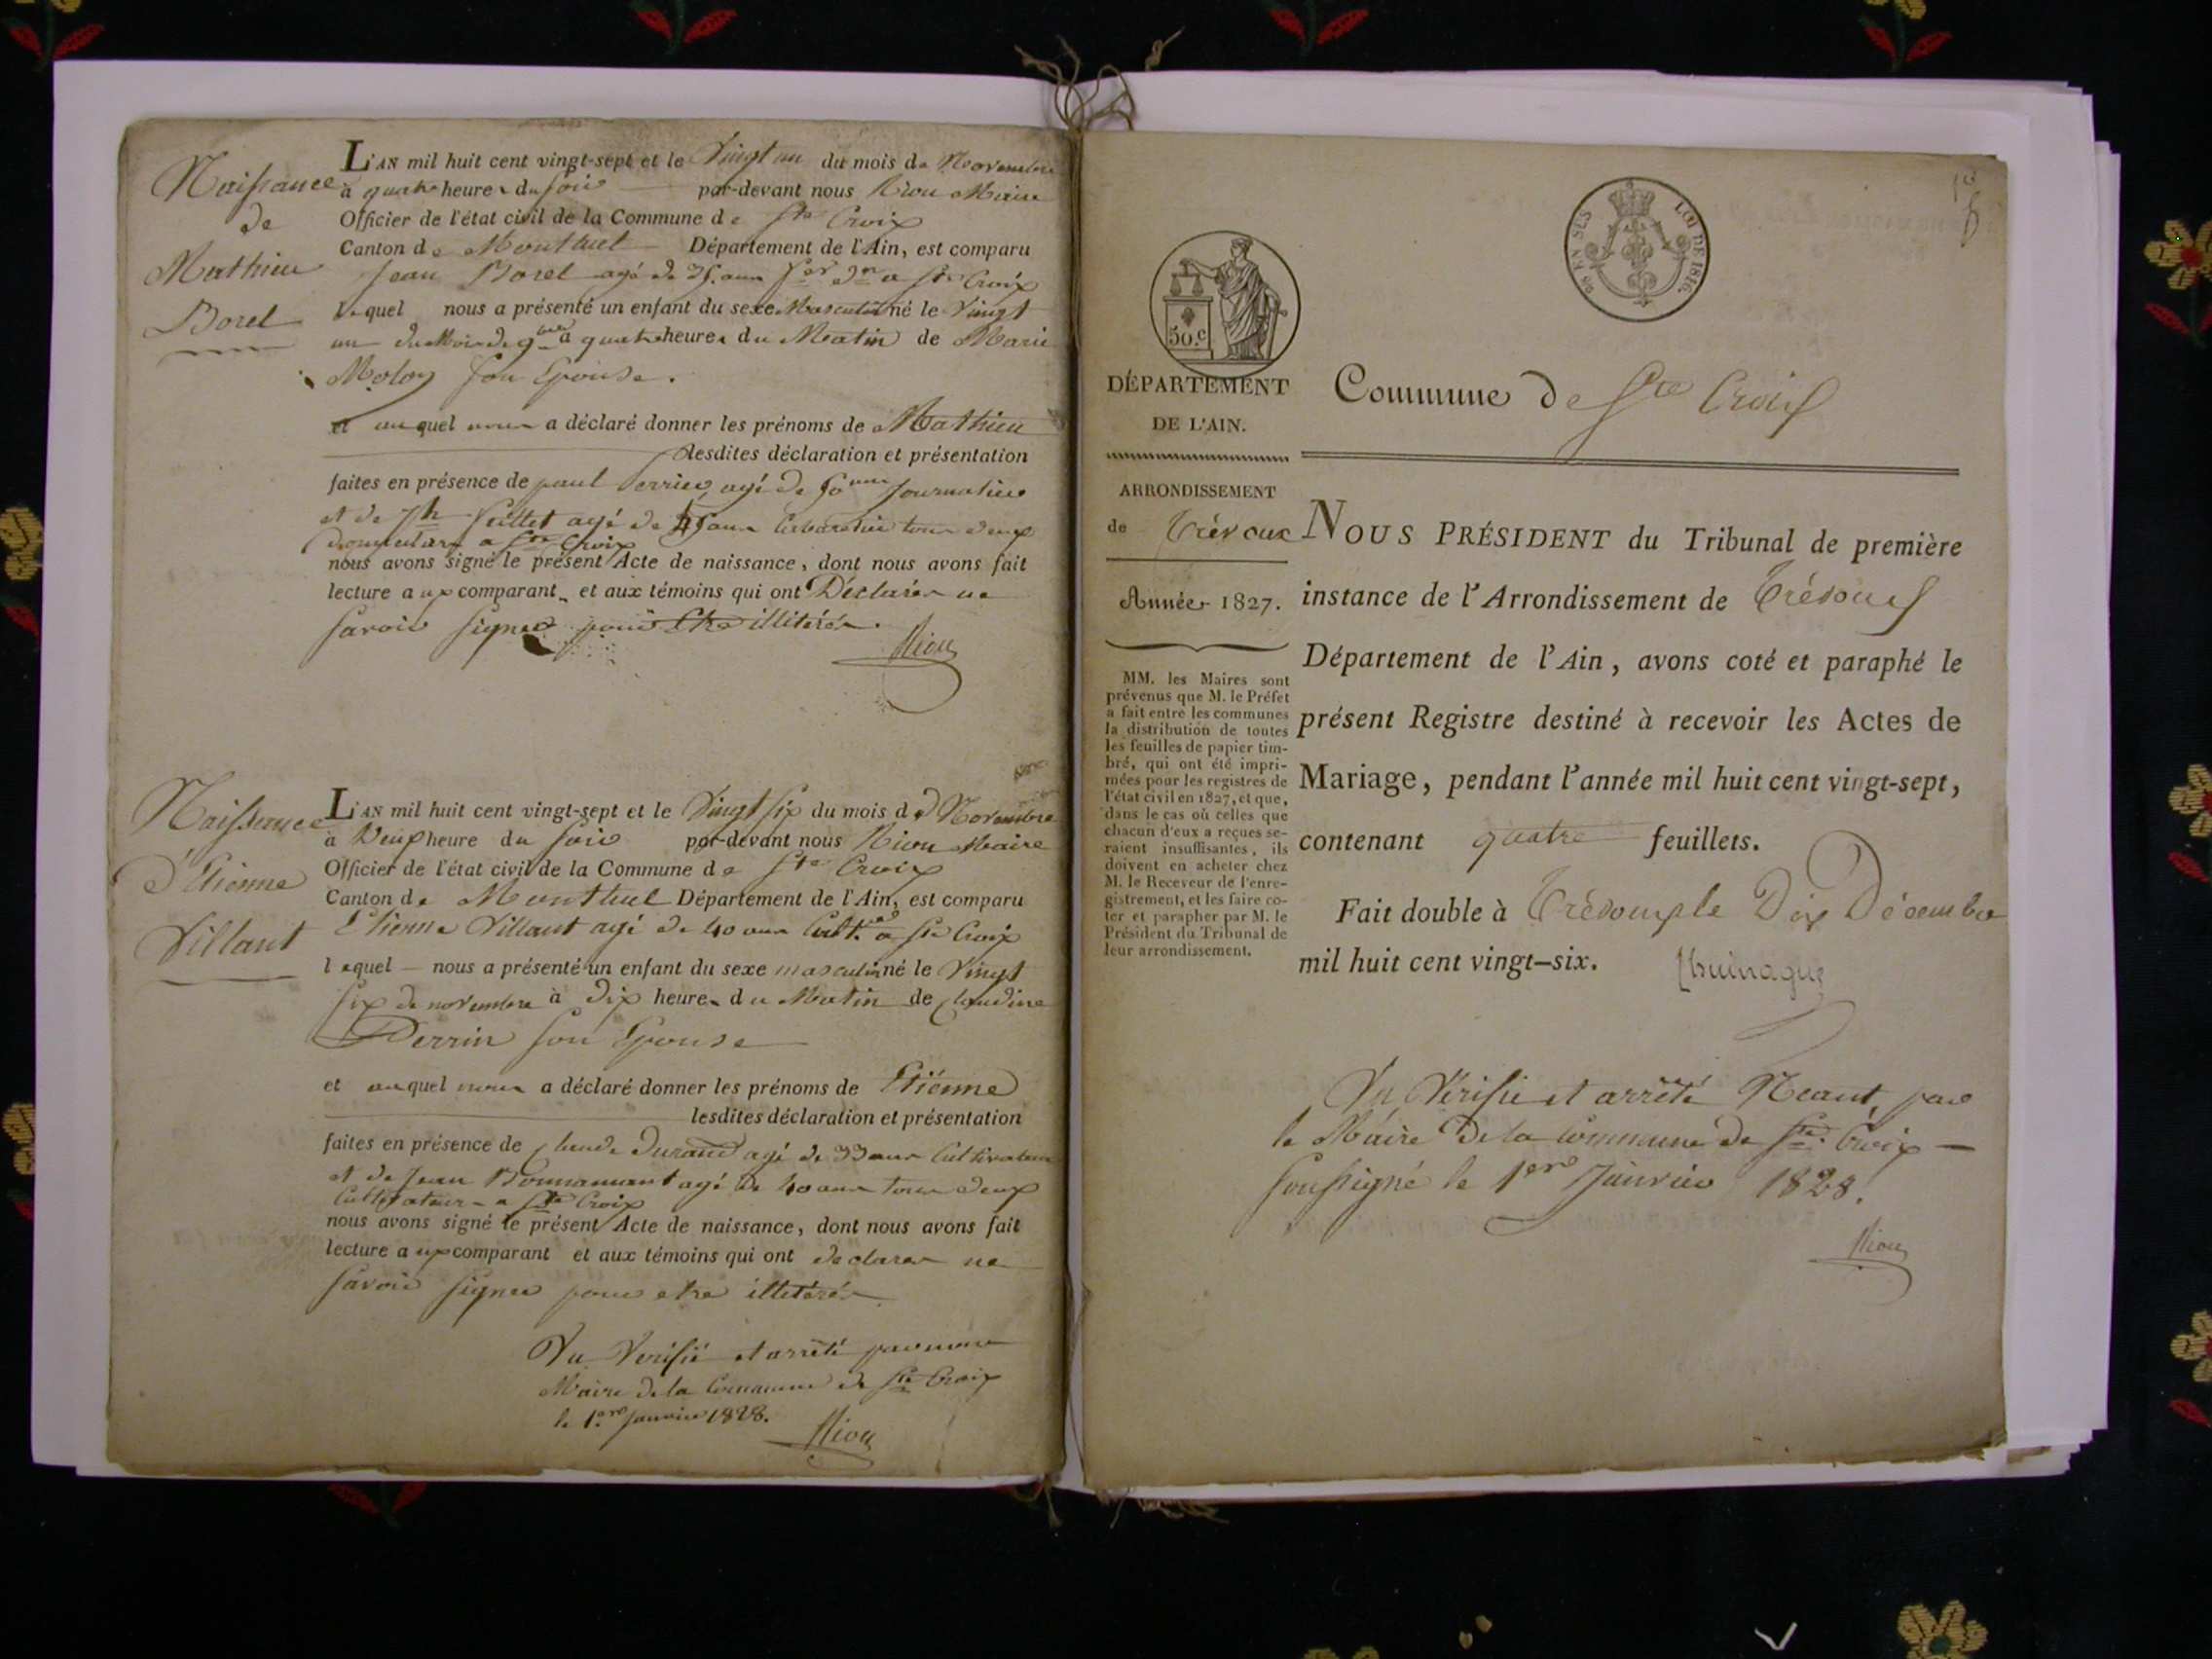 Naissance
de
Mathieu
Borel
L'AN mil huit cent vingt-sept et le Vingt un du mois de Novembre
à quatre heures du soir par-devant nous Niou Maire
Officier de l'état civil de la Commune de Ste Croix
Canton de Montluel Département de l'Ain, est comparu
Jean Borel agé de 35 ans a Ste Croix
lequel nous a présenté un enfant du sexe Masculin né le Vingt
un du Mois de 9bre à quatre heures du Matin de Marie
son Epouse.
et auquel nous a déclaré donner les prénoms de Mathieu
lesdites déclaration et présentation
faites en présence de paul Perrier agé de 50 ans Journalier
et de agé de 45 ans Cabaretier tous deux
a Ste Croix
nous avons signé le présent Acte de naissance, dont nous avons fait
lecture aux comparant et aux témoins qui ont Déclarés ne
savoir signer pour être illitérés.
Niou
Naissance
d'Etienne
Villant
L'AN mil huit cent vingt-sept et le Vingt six du mois de Novembre
à Deux heure du soir par-devant nous Niou Maire
Officier de l'état civil de la Commune de Ste Croix
Canton de Montluel Département de l'Ain, est comparu
Etienne Villant agé de 40 ans Cultr a Ste Croix
lequel nous a présenté un enfant du sexe masculin né le Vingt
six de novembre à dix heures du Matin de Claudine
Perrin son Epouse
et auquel nous a déclaré donner les prénoms de Etienne
lesdites déclaration et présentation
faites en présence de Claude Durand agé de 33 ans Cultivateur
et de Jean Bonnamant agé de 40 ans tous deux
Cultivateurs a Ste Croix
nous avons signé le présent Acte de naissance, dont nous avons fait
lecture aux comparant et aux témoins qui ont declarés ne
savoir signer pour etre illetérés
Vu Verifié et arrêté par nous
Maire de la Commune de Ste Croix
le 1er Janvier 1828.
Niou
LOI DE 1816.
50.c
DÉPARTEMENT
DE L'AIN.
Commune de Ste Croix
ARRONDISSEMENT
de Trévoux
Année 1827.
MM. les Maires sont
prévenus que M. le Préfet
a fait entre les communes
la distribution de toutes
les feuilles de papier tim-
bré, qui ont été impri-
mées pour les registres de
l'état civil en 1827, et que,
dans le cas où celles que
chacun d'eux a reçues se-
raient insuffisantes, ils
doivent en acheter chez
M. le Receveur de l'enre-
gistrement, et les faire co-
ter et parapher par M. le
Président du Tribunal de
leur arrondissement.
NOUS PRÉSIDENT du Tribunal de première
instance de l'Arrondissement de Trévoux
Département de l'Ain, avons coté et paraphé le
présent Registre destiné à recevoir les Actes de
Mariage, pendant l'année mil huit cent vingt-sept,
contenant quatre feuillets.
Fait double à Trévoux le Dix Décembre
mil huit cent vingt-six.
Vu Vérifié et arrêté Néant, par
le Maire De la Commune de Ste Croix
soussigné le 1er Janvier 1828.
Niou